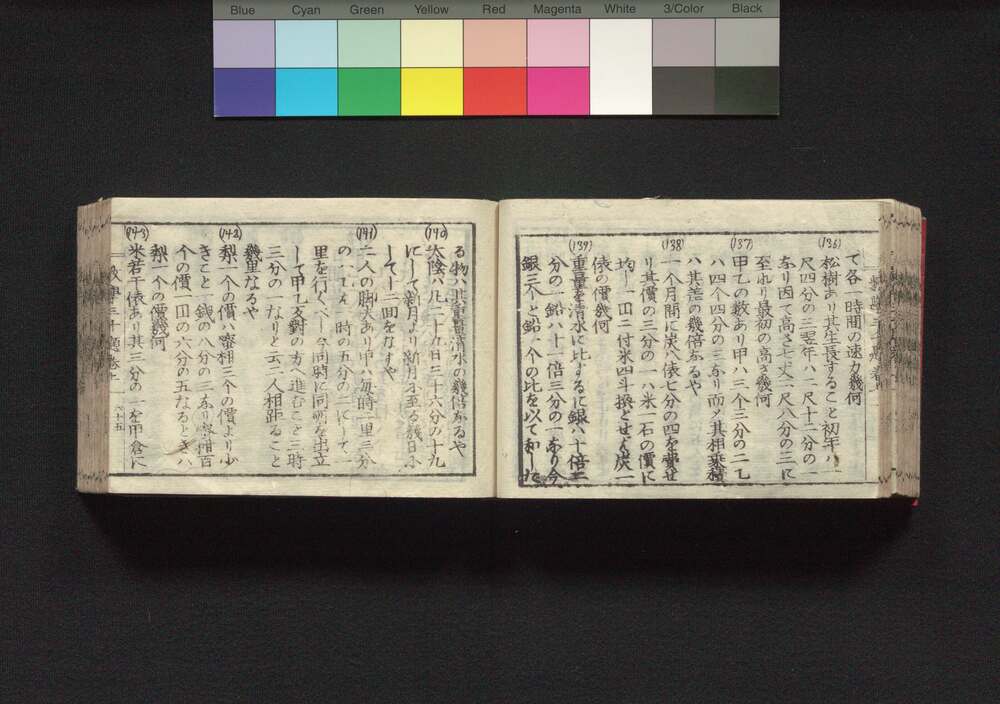 Blue Cyan Green Yellow Red Magenta White 3/Color Black
て各一時間の速力幾何
(136)
松樹あり其生長すること初年ハ一
尺四分の三翌年ハ二尺十二分の一
なり因て高さ七丈二尺八分の三に
至れり最初の高さ幾何
(137)
甲乙の数あり甲ハ三个三分の二乙
ハ四个四分の三なり而メ其相乗積
ハ其差の幾倍なるや
(138)
一个月間に炭八俵七分の四を費せ
り其價の三分の一ハ米一石の價に
均し一円ニ付米四斗換とせよ炭一
俵の價幾何
(139)
重量を清水に比するに銀ハ十倍二
分の一鉛ハ十一倍三分の一なり今
銀三个と鉛一个の比を以て和した
る物ハ其重量清水の幾倍なるや
(140)
太陰ハ凡二十九日三十六分の十九
にして新月より新月に至る幾日に
して一二面をなすや
(141)
二人の脚夫あり甲ハ毎時一里三分
の一乙ハ一時の五分の二にして一
里を行くべし今同時に同所を出立
して甲乙反對の方へ進むこと三時
三分の一なりと云二人相距ること
幾里なるや
(142)
梨一个の價ハ蜜柑三个の價より少
きこと一銭の八分の三なり蜜柑百
个の價一円の六分の五なるときハ
梨一个の價幾何
(143)
米若干俵あり其三分の一を甲倉に